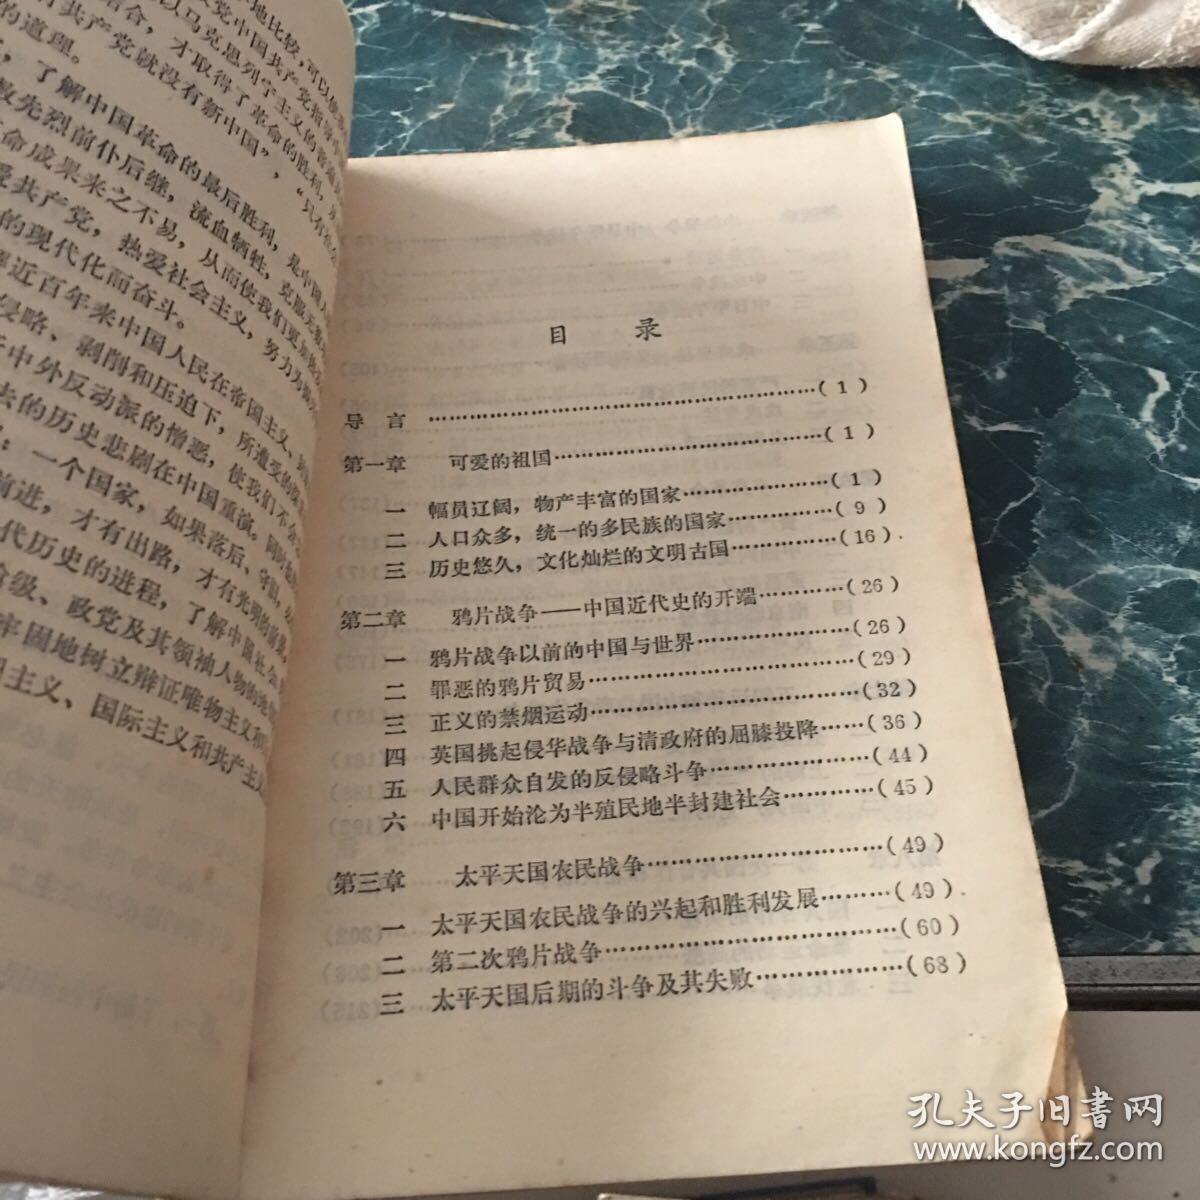 地比较，可以使
党中国共产党
结合，才取得了革命的胜利，
以马克思列宁主义的普遍
有共产党就没有新中国”，“只有
的道理。
，了解中国革命的最后胜利，是中国人
数先烈前仆后继，流血牺牲，克服无数
命成果来之不易，从而使我们更
爱共产党，热爱社会主义，努力为
的现代化而奋斗。
近百年来中国人民在帝国主义、
侵略、剥削和压迫下，所遭受的
中外反动派的憎恶，使我们不
去的历史悲剧在中国重演。
：一个国家，如果落后、守旧，
前进，才有出路，才有光明的前
代历史的进程，了解中国社会
阶级、政党及其领袖人物的
牢固地树立辩证唯物主义和
国主义、国际主义和共产主
目 录
导 言……………………………………………(1)
第一章 可爱的祖国……………………………(1)
一 幅员辽阔，物产丰富的国家……………(1)
二 人口众多，统一的多民族的国家………(9)
三 历史悠久，文化灿烂的文明古国………(16)
第二章 鸦片战争——中国近代史的开端……(26)
一 鸦片战争以前的中国与世界……………(26)
二 罪恶的鸦片贸易…………………………(29)
三 正义的禁烟运动…………………………(32)
四 英国挑起侵华战争与清政府的屈膝投降…(36)
五 人民群众自发的反侵略斗争……………(44)
六 中国开始沦为半殖民地半封建社会……(45)
第三章 太平天国农民战争……………………(49)
一 太平天国农民战争的兴起和胜利发展…(49)
二 第二次鸦片战争…………………………(60)
三 太平天国后期的斗争及其失败…………(68)
孔夫子旧书网
www.kongfz.com